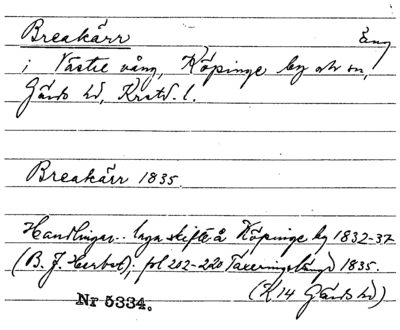 Breakärr Äng
i Västre vång, Köpinge by och sn,
Gärds hd, Kratd. l.
Breakärr 1835.
Handlingar.. laga skifte å Köpinge by 1832-37
(B. J. Herbst), fol 202-220 Taxeringslängd 1835.
(K14 Gärds hd)
Nr 5334.